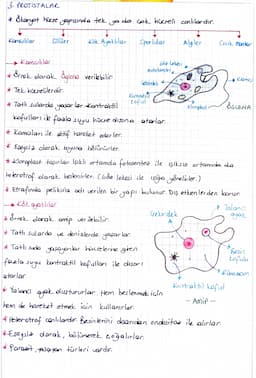 3. PROTİSTALAR
Ökaryot hücre yapısında tek ya da çok hücreli canlılardır.
Kamçılılar Cilliler Kök Ayaklılar Sporlular Algler Cıvık Mantar
Kamçılılar
Örnek olarak Öglena verilebilir
Tek hücrelilerdir.
Tatlı sularda yaşarlar kontraktil
kofulları ile fazla suyu hücre dışına atarlar.
Kamçıları ile aktif hareket ederler.
Eşeysiz olarak boyuna bölünürler.
Kloroplast taşırlar ışıklı ortamda fotosentez ile ışıksız ortamda da
heterotrof olarak beslenirler. (Göz lekesi ile ışığa yönelirler.)
Etrafında pelikula adı verilen bir yapı bulunur. Dış etkenlerden korur.
Göz lekesi
Kamçı
Kontraktil koful
Kloroplast
ÖGLENA
Kök ayaklılar
Örnek olarak amip verilebilir.
Tatlı sularda ve denizlerde yaşarlar.
Tatlı suda yaşayanlar hücrelerine giren
fazla suyu kontraktil kofulları ile dışarı
atarlar.
Yalancı ayak oluştururlar hem beslenmek için
hem de hareket etmek için kullanırlar.
Heterotrof canlılardır. Besinlerini dışarıdan endositoz ile alırlar.
Eşeysiz olarak, bölünerek çoğalırlar.
Parazit yaşayan türleri vardır.
Çekirdek
Yalancı ayak
Besin kofulu
Kontraktil koful
- Amip -